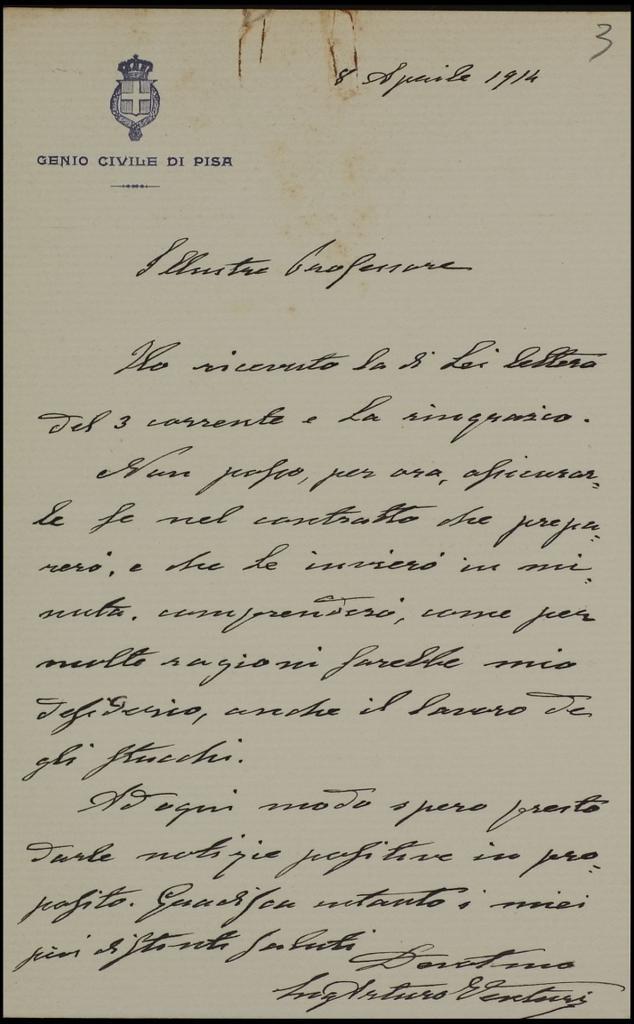 3
8 Aprile 1914
GENIO CIVILE DI PISA
Illustre Professore
Ho ricevuto la di Lei lettera
del 3 corrente e La ringrazio.
Non posso, per ora, assicurar-
le se nel contratto che prepa-
rerò, e che le invierò in mi-
nuta, comprenderò, come per
molte ragioni sarebbe mio
desiderio, anche il lavoro de
gli stucchi.
Ad ogni modo spero presto
darle notizie positive in pro-
posito. Gradisca intanto i miei
più distinti saluti
Devotmo
Ing Arturo Venturi